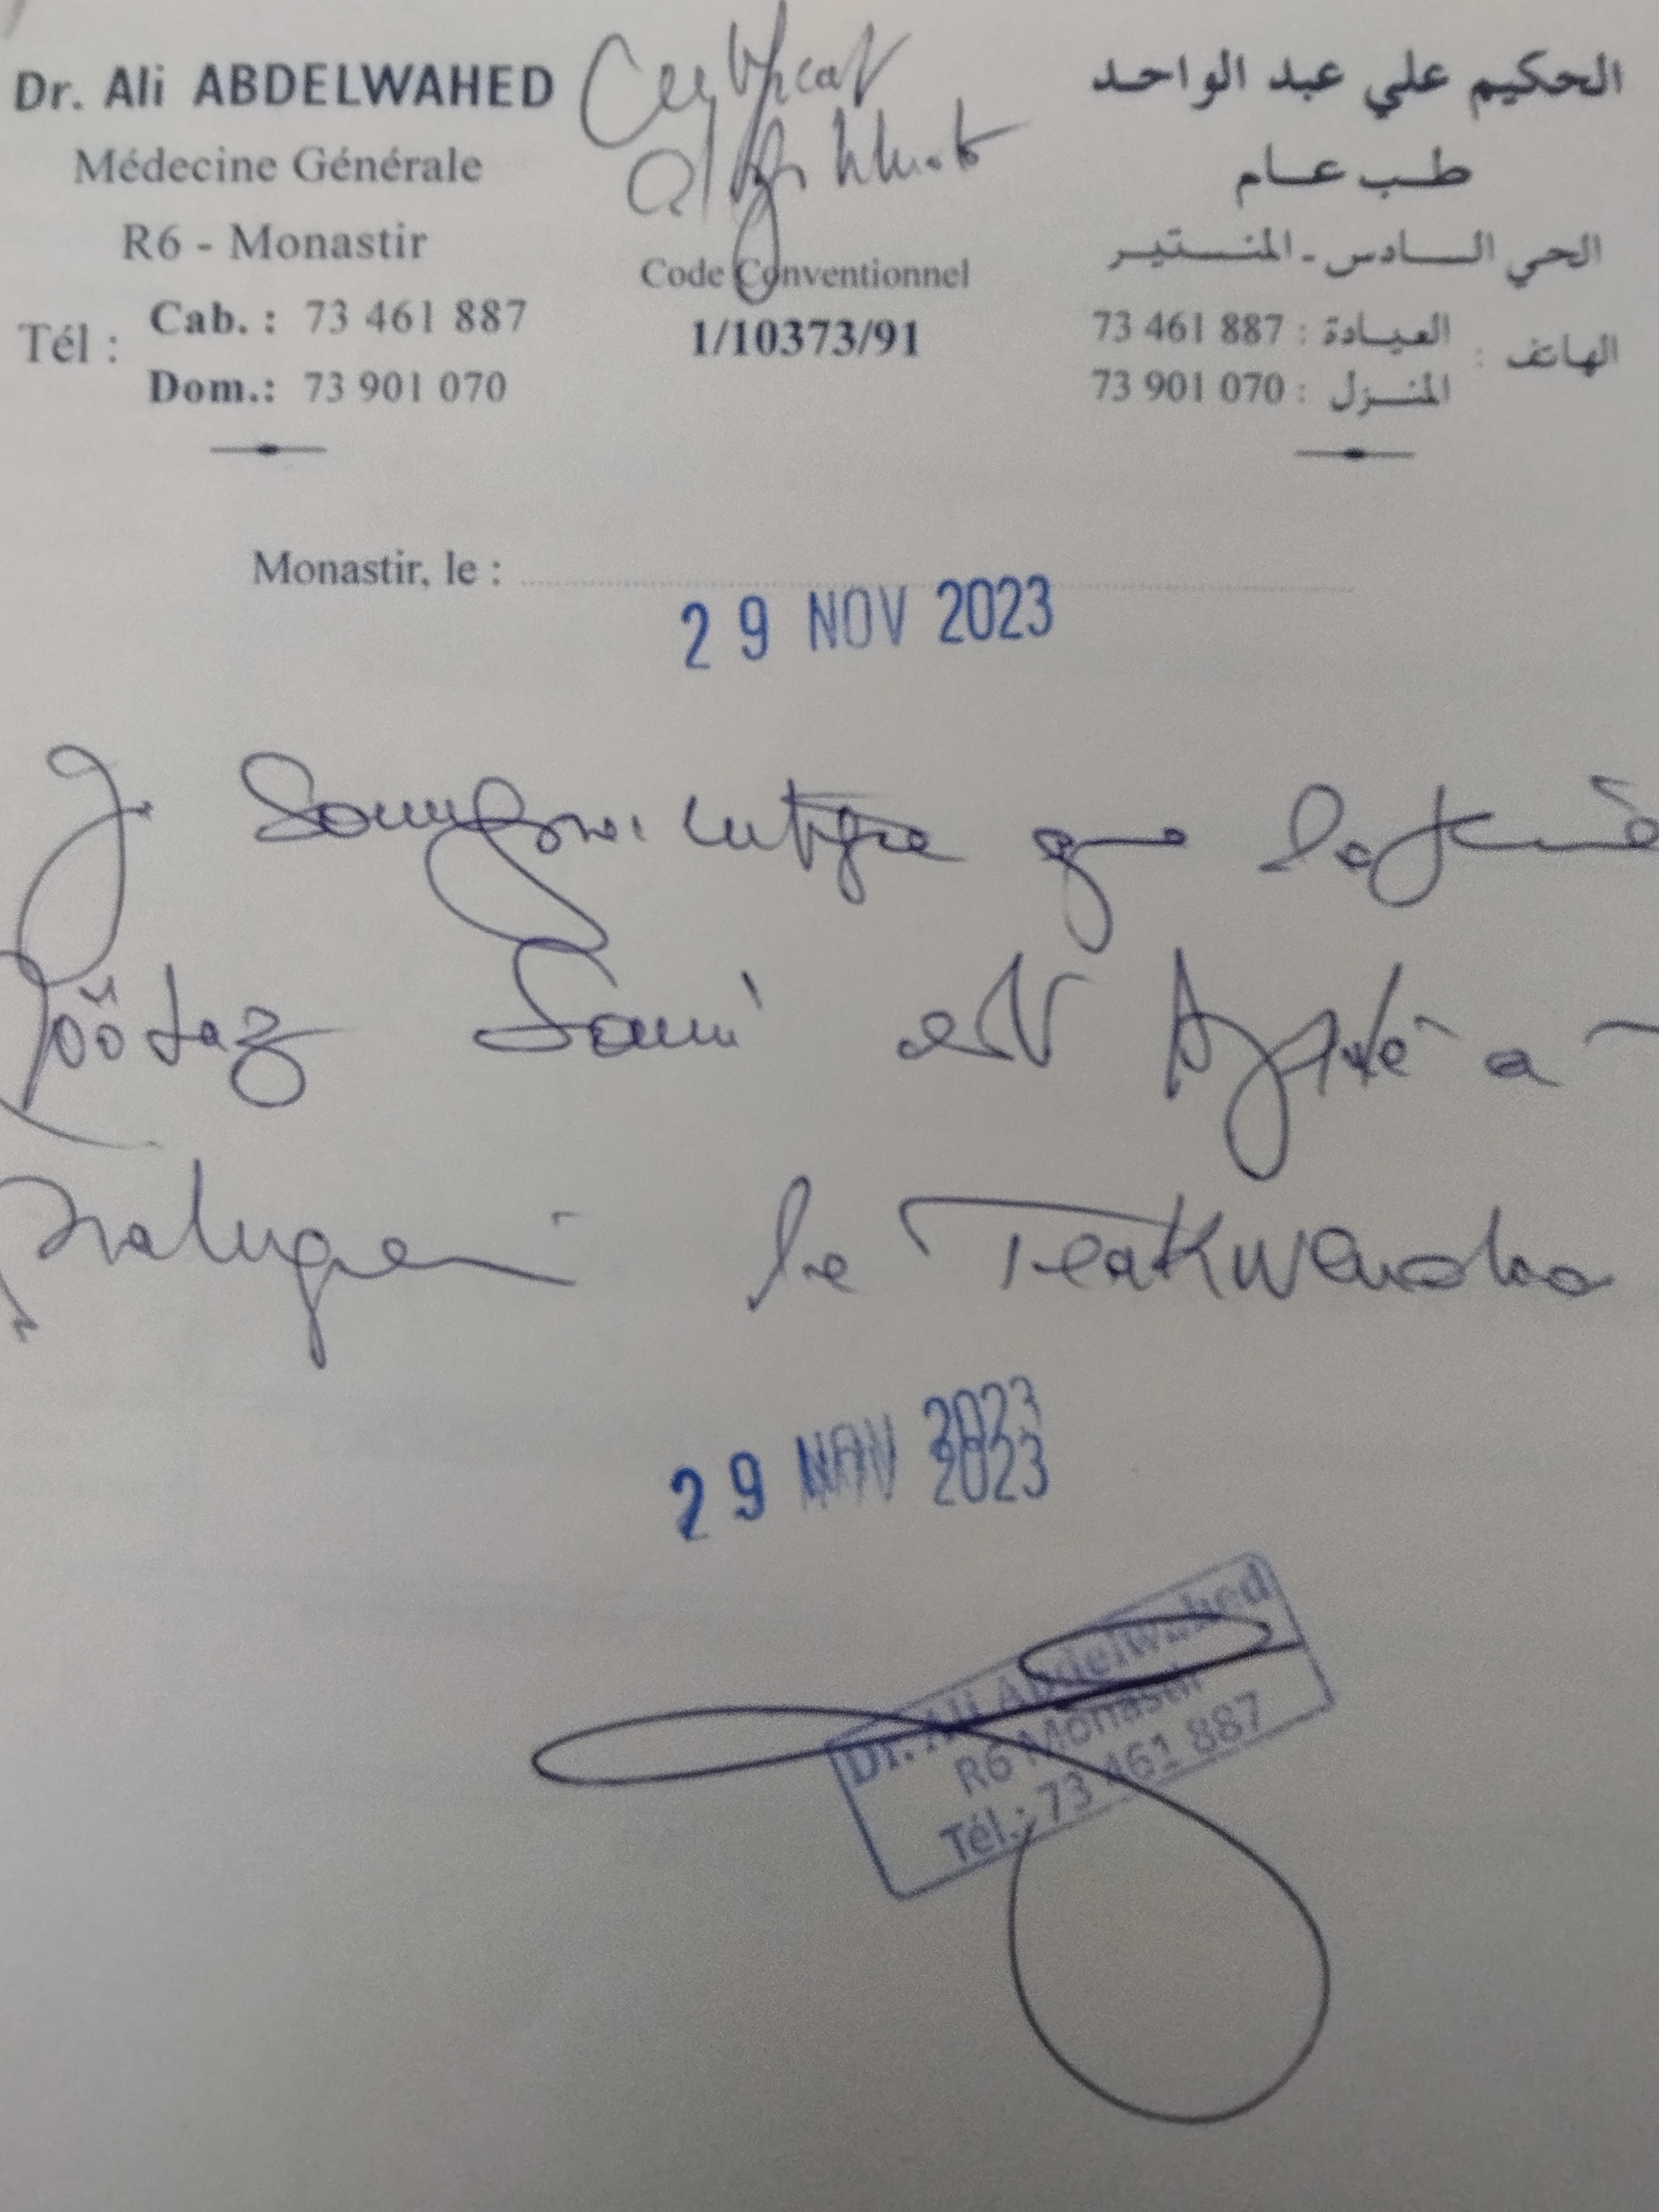 Dr. Ali ABDELWAHED
Médecine Générale
R6 - Monastir
Tél :
Cab. : 73 461 887
Dom.: 73 901 070
Certificat
Code Conventionnel
1/10373/91
الحكيم علي عبد الواحد
طب عام
الحي السادس - المنستير
الهاتف :
العيادة : 73 461 887
المنزل : 73 901 070
Monastir, le :
29 NOV 2023
Je certifie que
Sami est Apte a
le Teakwendoo
29 NOV 2023
Dr. Ali Abdelwahed
R6 Monastir
Tél.: 73 461 887